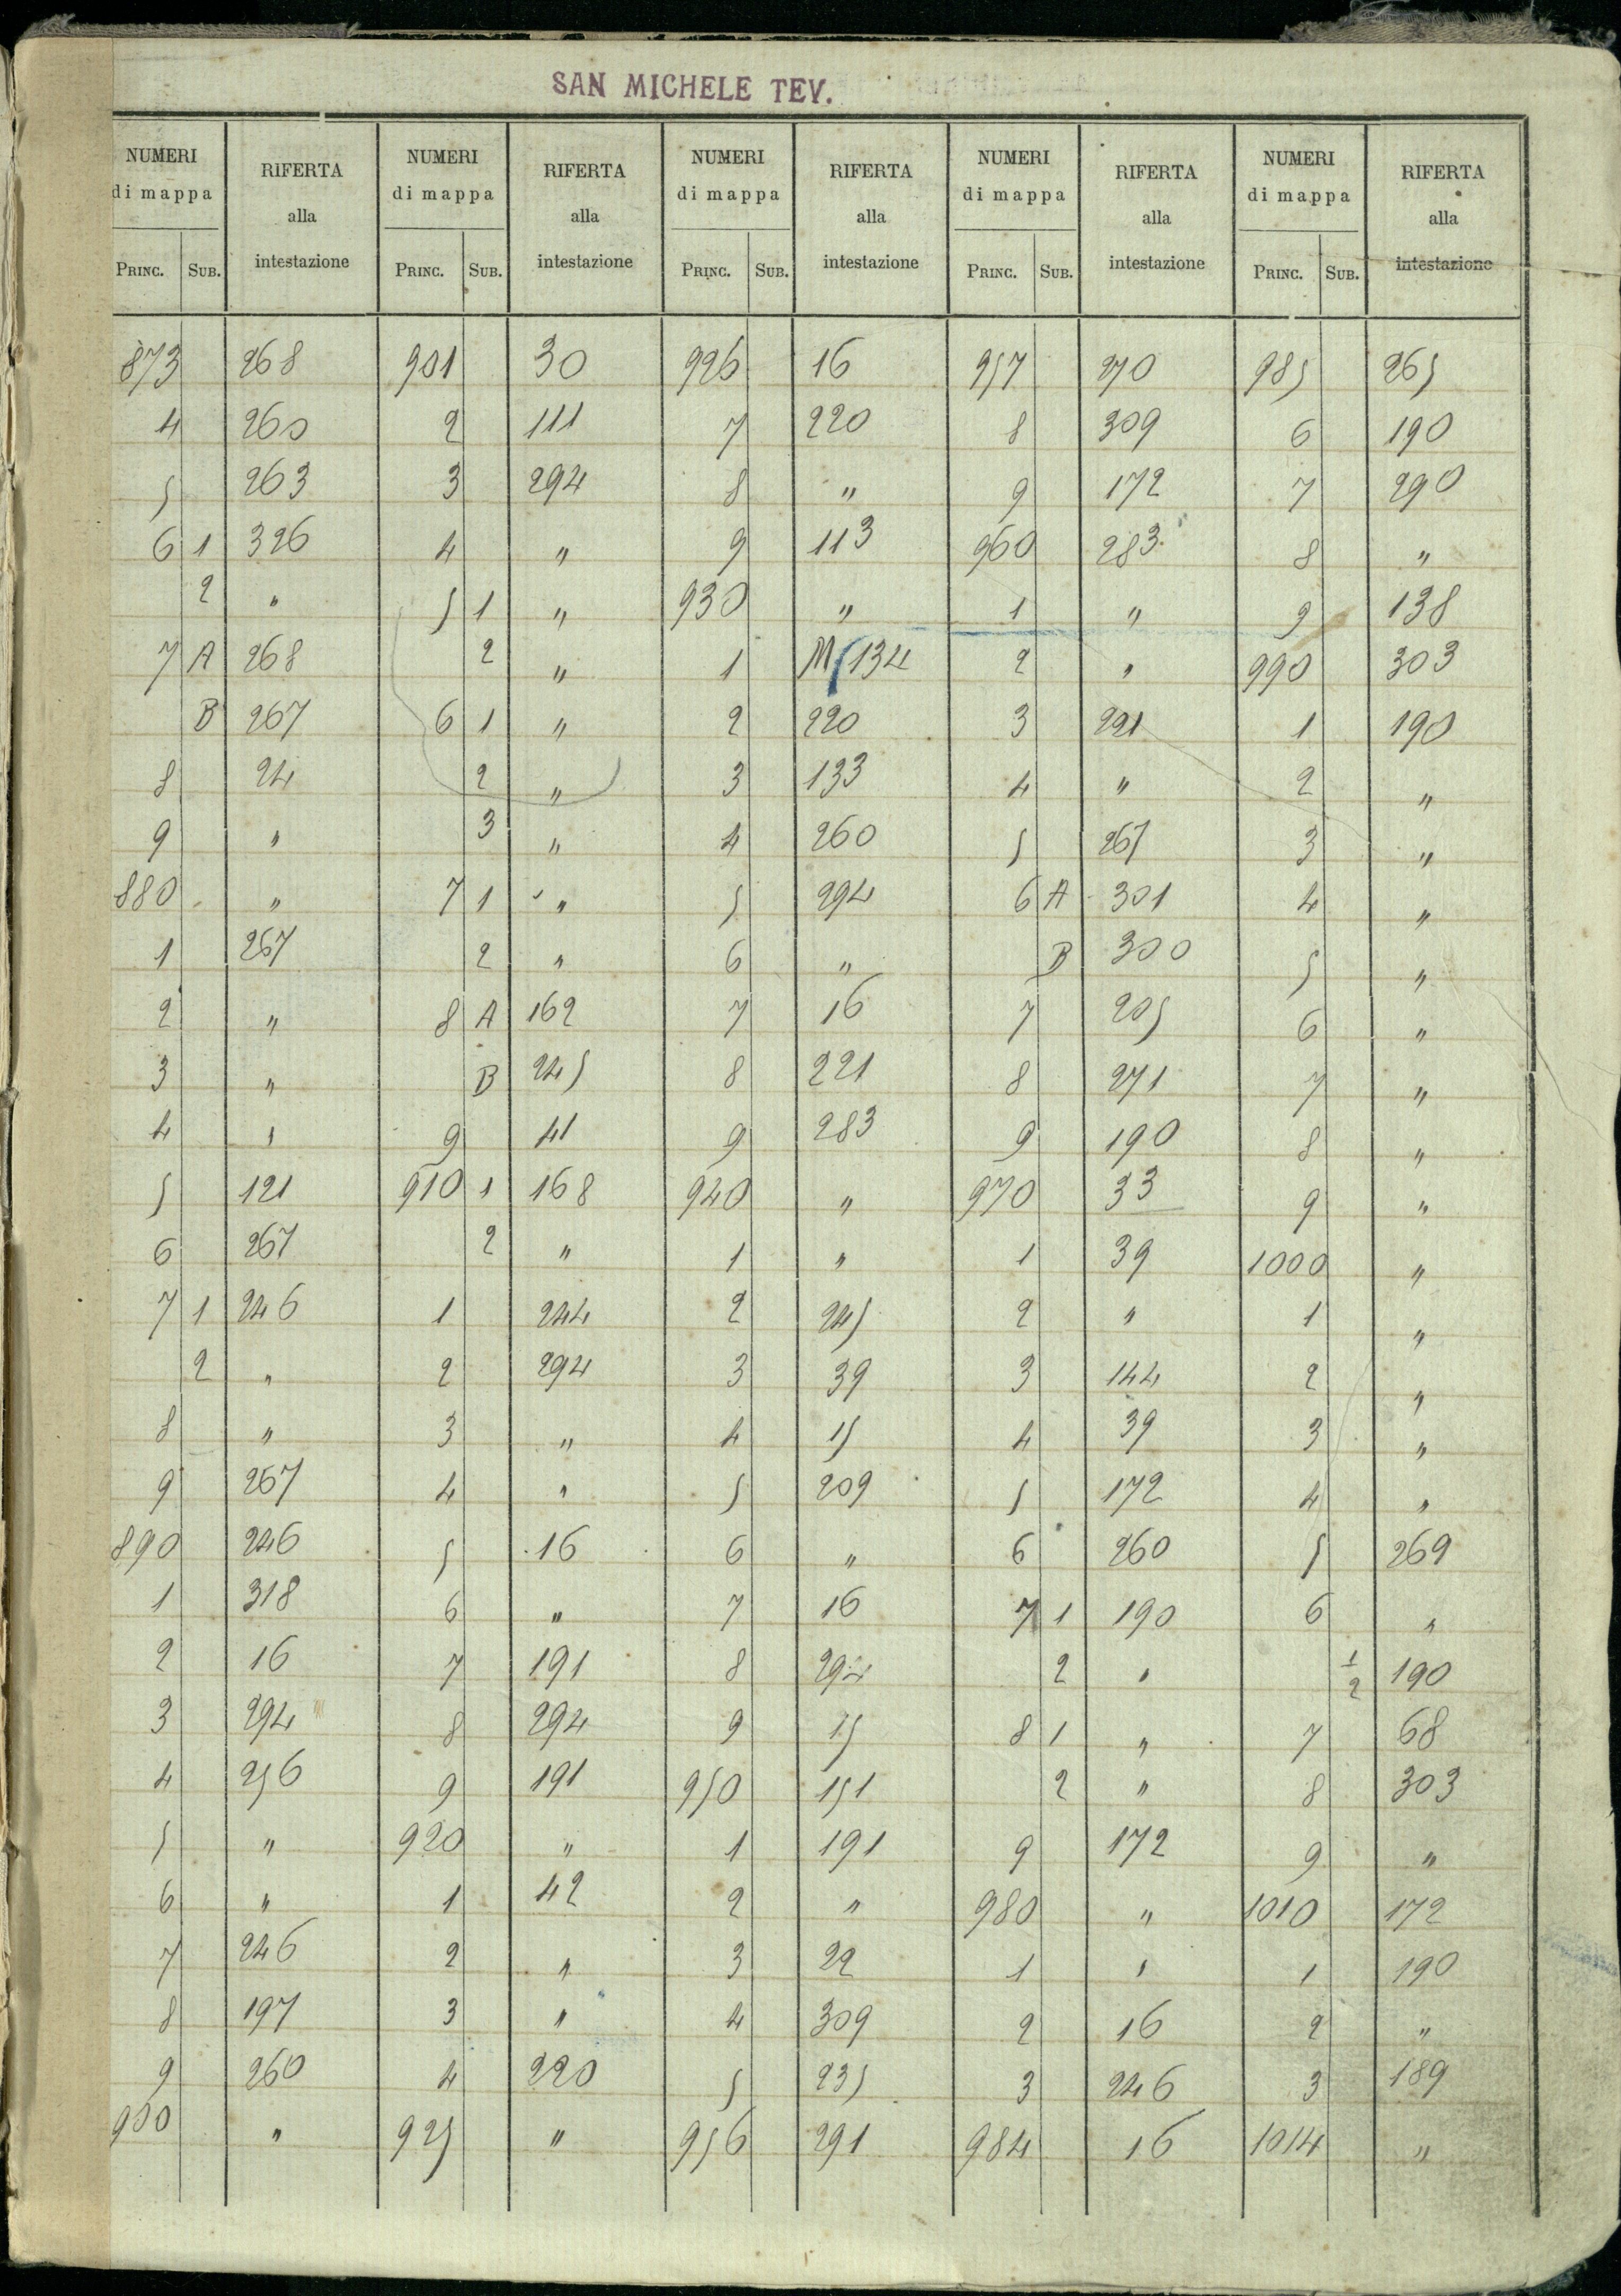 SAN MICHELE TEV.
NUMERI NUMERI NUMERI NUMERI NUMERI
RIFERTA RIFERTA RIFERTA RIFERTA RIFERTA
di mappa di mappa di mappa di mappa di mappa
alla alla alla alla alla
intestazione intestazione intestazione intestazione intestazione
PRINC. SUB. PRINC. SUB. PRINC. SUB. PRINC. SUB. PRINC. SUB.
873 268 901 30 926 16 957 270 985 265
4 260 2 111 7 220 8 309 6 190
5 263 3 294 8 " 9 172 7 290
6 1 326 4 " 9 113 960 283 8 "
2 " 5 1 " 930 " 1 " 9 138
7 A 268 2 " 1 M/134 2 " 990 303
B 267 6 1 " 2 220 3 221 1 190
8 24 2 " 3 133 4 " 2 "
9 " 3 " 4 260 5 267 3 "
880 " 7 1 " 5 294 6 A 301 4 "
1 267 2 " 6 " B 300 5 "
2 " 8 A 162 7 16 7 205 6 "
3 " B 245 8 221 8 271 7 "
4 " 9 41 9 283 9 190 8 "
5 121 910 1 168 940 " 970 33 9 "
6 267 2 " 1 " 1 39 1000 "
7 1 246 1 244 2 245 2 " 1 "
2 " 2 294 3 39 3 144 2 "
8 " 3 " 4 15 4 39 3 "
9 267 4 " 5 209 5 172 4 "
890 246 5 16 6 " 6 260 5 269
1 318 6 " 7 16 7 1 190 6 "
2 16 7 191 8 294 2 " 1/2 190
3 294 8 294 9 15 8 1 " 7 68
4 256 9 191 950 151 2 " 8 303
5 " 920 " 1 191 9 172 9 "
6 " 1 42 2 " 980 " 1010 172
7 246 2 " 3 22 1 " 1 190
8 197 3 " 4 309 2 16 2 "
9 260 4 220 5 235 3 246 3 189
900 " 925 " 956 291 984 16 1014 "